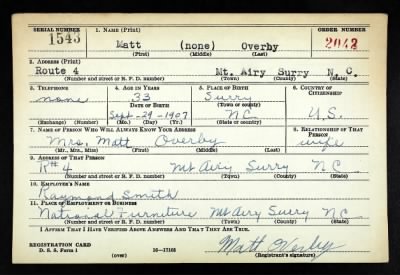 SERIAL NUMBER 1. NAME (Print) ORDER NUMBER
1543 Matt (none) Overby 2043
(First) (Middle) (Last)
2. ADDRESS (Print)
Route 4 Mt. Airy Surry N. C.
(Number and street or R. F. D. number) (Town) (County) (State)
3. TELEPHONE 4. AGE IN YEARS 5. PLACE OF BIRTH 6. COUNTRY OF CITIZENSHIP
none 33 Surry
DATE OF BIRTH (Town or county)
Sept-29-1907 NC U.S.
(Exchange) (Number) (Mo.) (Day) (Yr.) (State or country)
7. NAME OF PERSON WHO WILL ALWAYS KNOW YOUR ADDRESS 8. RELATIONSHIP OF THAT PERSON
Mrs. Matt Overby wife
(Mr., Mrs., Miss) (First) (Middle) (Last)
9. ADDRESS OF THAT PERSON
R#4 Mt Airy Surry NC
(Number and street or R. F. D. number) (Town) (County) (State)
10. EMPLOYER'S NAME
Raymond Smith
11. PLACE OF EMPLOYMENT OR BUSINESS
National Furniture Mt Airy Surry NC
(Number and street or R. F. D. number) (Town) (County) (State)
I AFFIRM THAT I HAVE VERIFIED ABOVE ANSWERS AND THAT THEY ARE TRUE.
REGISTRATION CARD
D. S. S. Form 1 (over) 16—17105 Matt Overby
(Registrant's signature)